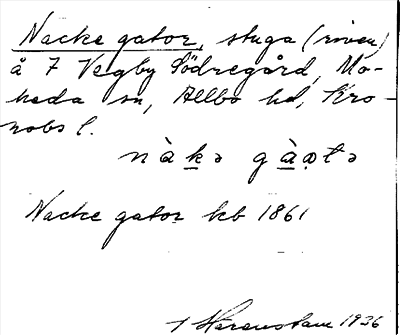 Nacke gator, stuga (riven)
å 7 Vegby Södregård, Mo-
heda sn, Allbo hd, Kro-
nobs l.
nàkə gàətə
Nacke gator hcb 1861
Harenstam 1936